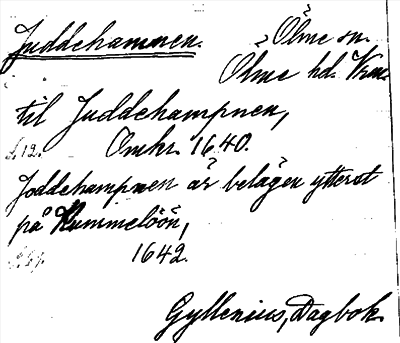 Juddehamnen. Ölme sn.
Ölme hd. Vrm.
til Juddehampnen,
s. 12. Omkr. 1640.
Joddehampnen är belägen ytterst
på Hummelöön,
1642.
Gyllenius, Dagbok.